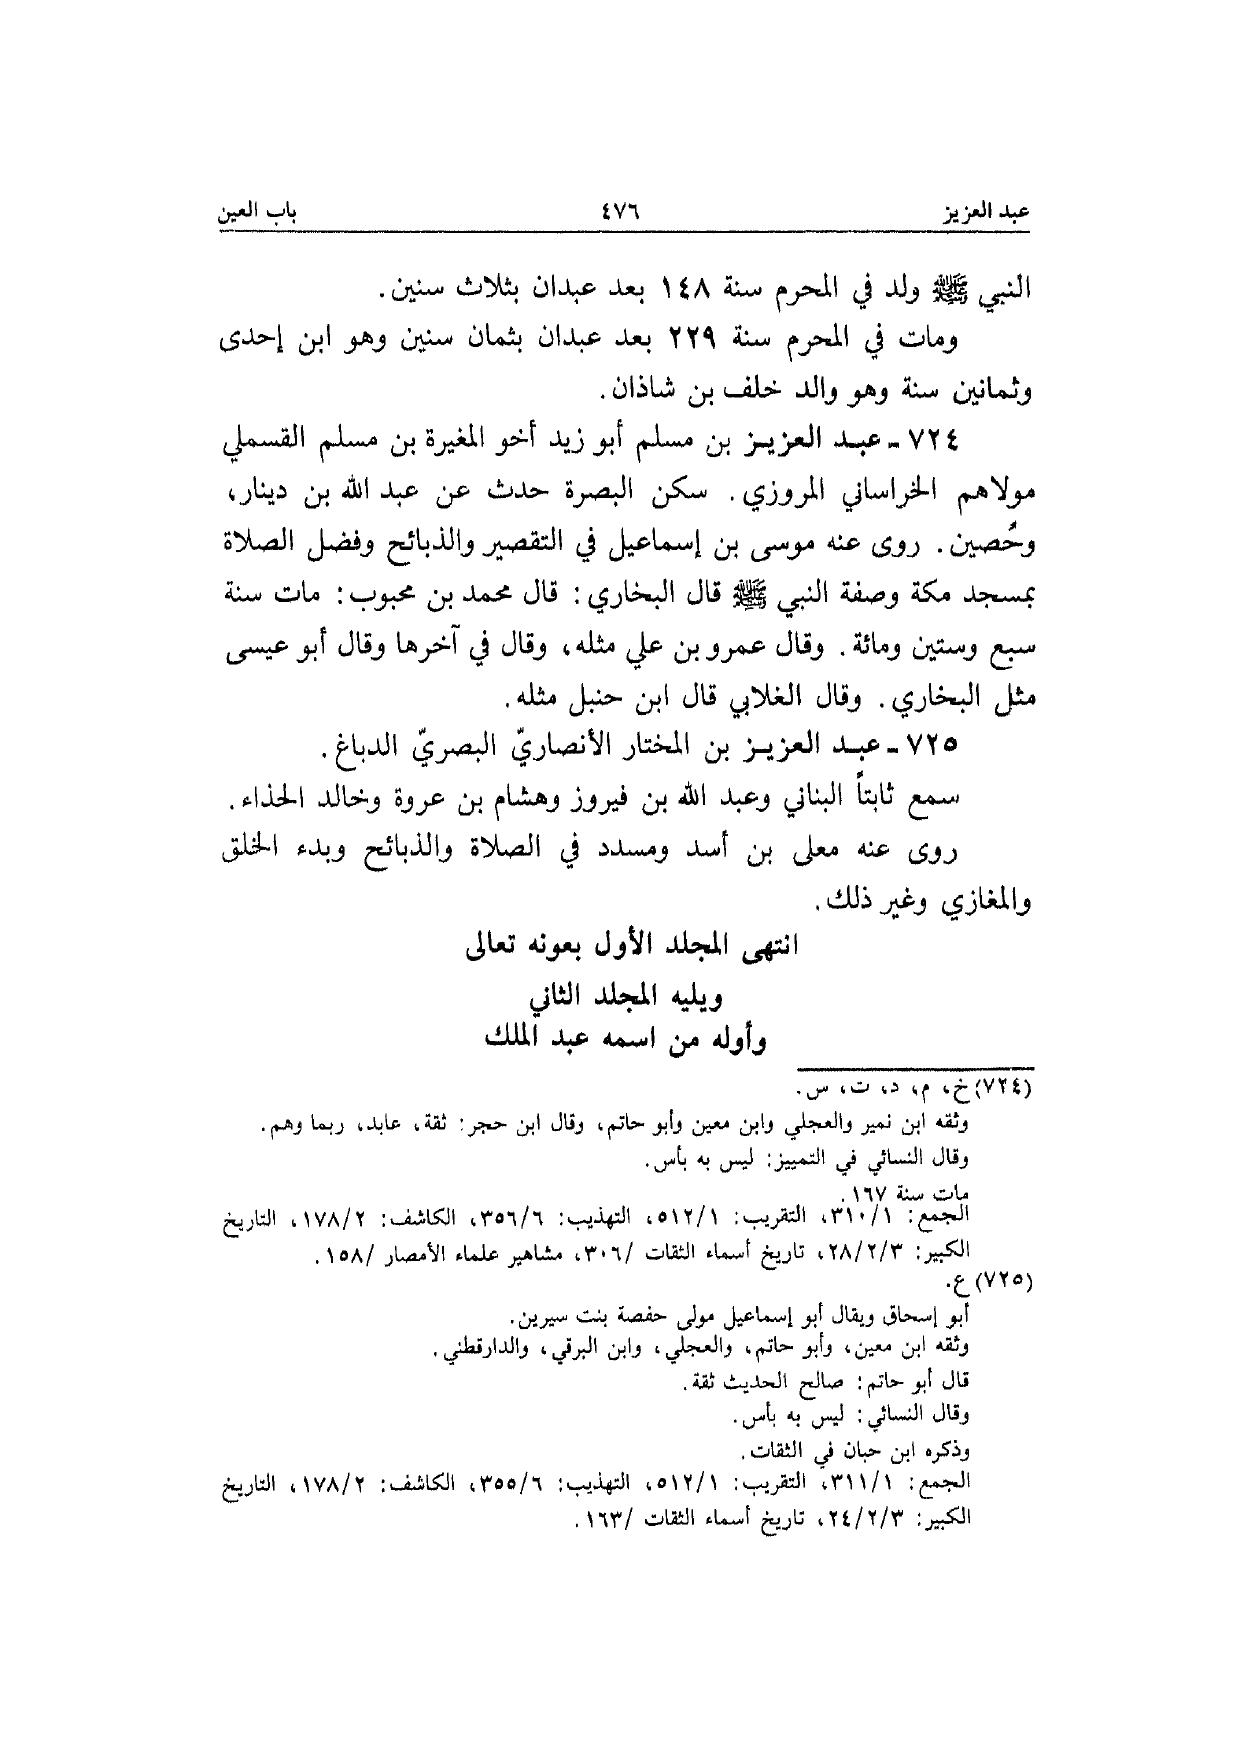 عبد العزيز ٤٧٦ باب العين
النبي ﷺ ولد في المحرم سنة ١٤٨ بعد عبدان بثلاث سنين.
ومات في المحرم سنة ٢٢٩ بعد عبدان بثمان سنين وهو ابن إحدى
وثمانين سنة وهو والد خلف بن شاذان.
٧٢٤ - عبد العزيز بن مسلم أبو زيد أخو المغيرة بن مسلم القسملي
مولاهم الخراساني المروزي. سكن البصرة حدث عن عبد الله بن دينار،
وحُصين. روى عنه موسى بن إسماعيل في التقصير والذبائح وفضل الصلاة
بمسجد مكة وصفة النبي ﷺ قال البخاري: قال محمد بن محبوب: مات سنة
سبع وستين ومائة. وقال عمرو بن علي مثله، وقال في آخرها وقال أبو عيسى
مثل البخاري. وقال الغلابي قال ابن حنبل مثله.
٧٢٥ - عبد العزيز بن المختار الأنصاريّ البصريّ الدباغ.
سمع ثابتاً البناني وعبد الله بن فيروز وهشام بن عروة وخالد الحذاء.
روى عنه معلى بن أسد ومسدد في الصلاة والذبائح وبدء الخلق
والمغازي وغير ذلك.
انتهى المجلد الأول بعونه تعالى
ويليه المجلد الثاني
وأوله من اسمه عبد الملك
(٧٢٤) خ، م، د، ت، س.
وثقه ابن نمير والعجلي وابن معين وأبو حاتم، وقال ابن حجر: ثقة، عابد، ربما وهم.
وقال النسائي في التمييز: ليس به بأس.
مات سنة ١٦٧.
الجمع: ٣١٠/١، التقريب: ٥١٢/١، التهذيب: ٣٥٦/٦، الكاشف: ١٧٨/٢، التاريخ
الكبير: ٢٨/٢/٣، تاريخ أسماء الثقات /٣٠٦، مشاهير علماء الأمصار /١٥٨.
(٧٢٥) ع.
أبو إسحاق ويقال أبو إسماعيل مولى حفصة بنت سيرين.
وثقه ابن معين، وأبو حاتم، والعجلي، وابن البرقي، والدارقطني.
قال أبو حاتم: صالح الحديث ثقة.
وقال النسائي: ليس به بأس.
وذكره ابن حبان في الثقات.
الجمع: ٣١١/١، التقريب: ٥١٢/١، التهذيب: ٣٥٥/٦، الكاشف: ١٧٨/٢، التاريخ
الكبير: ٢٤/٢/٣، تاريخ أسماء الثقات /١٦٣.